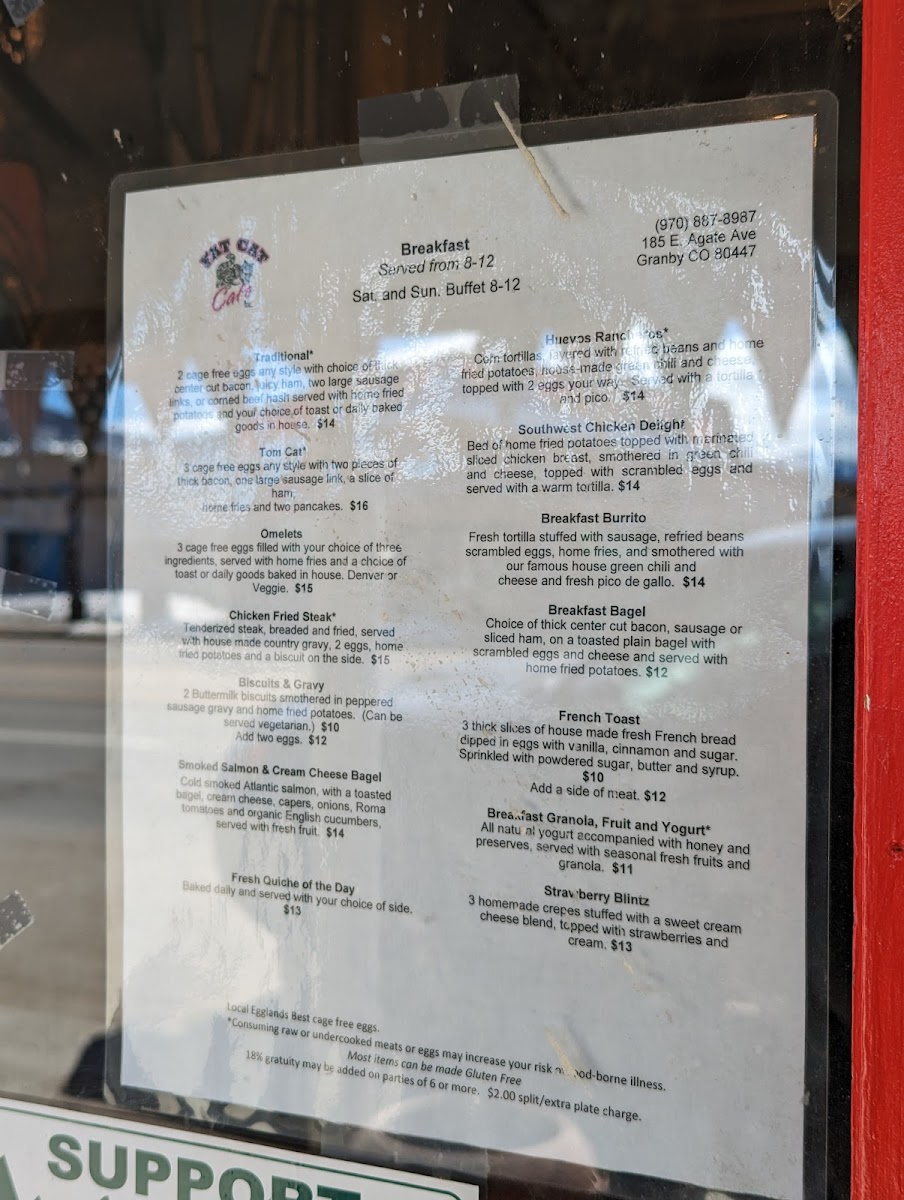 FAT CAT
Cafe
Breakfast
Served from 8-12
Sat. and Sun. Buffet 8-12
(970) 887-8987
185 E. Agate Ave
Granby CO 80447
Traditional*
2 cage free eggs any style with choice of thick
center cut bacon, juicy ham, two large sausage
links, or corned beef hash served with home fried
potatoes and your choice of toast or daily baked
goods in house. $14
Tom Cat*
3 cage free eggs any style with two pieces of
thick bacon, one large sausage link, a slice of
ham,
home fries and two pancakes. $16
Omelets
3 cage free eggs filled with your choice of three
ingredients, served with home fries and a choice of
toast or daily goods baked in house. Denver or
Veggie. $15
Chicken Fried Steak*
Tenderized steak, breaded and fried, served
with house made country gravy, 2 eggs, home
fried potatoes and a biscuit on the side. $15
Biscuits & Gravy
2 Buttermilk biscuits smothered in peppered
sausage gravy and home fried potatoes. (Can be
served vegetarian.) $10
Add two eggs. $12
Smoked Salmon & Cream Cheese Bagel
Cold smoked Atlantic salmon, with a toasted
bagel, cream cheese, capers, onions, Roma
tomatoes and organic English cucumbers,
served with fresh fruit. $14
Fresh Quiche of the Day
Baked daily and served with your choice of side.
$13
Huevos Rancheros*
Corn tortillas, layered with refried beans and home
fried potatoes, house-made green chili and cheese,
topped with 2 eggs your way. Served with a tortilla
and pico. $14
Southwest Chicken Delight
Bed of home fried potatoes topped with marinated
sliced chicken breast, smothered in green chili
and cheese, topped with scrambled eggs and
served with a warm tortilla. $14
Breakfast Burrito
Fresh tortilla stuffed with sausage, refried beans
scrambled eggs, home fries, and smothered with
our famous house green chili and
cheese and fresh pico de gallo. $14
Breakfast Bagel
Choice of thick center cut bacon, sausage or
sliced ham, on a toasted plain bagel with
scrambled eggs and cheese and served with
home fried potatoes. $12
French Toast
3 thick slices of house made fresh French bread
dipped in eggs with vanilla, cinnamon and sugar.
Sprinkled with powdered sugar, butter and syrup.
$10
Add a side of meat. $12
Breakfast Granola, Fruit and Yogurt*
All natural yogurt accompanied with honey and
preserves, served with seasonal fresh fruits and
granola. $11
Strawberry Blintz
3 homemade crepes stuffed with a sweet cream
cheese blend, topped with strawberries and
cream. $13
Local Egglands Best cage free eggs.
*Consuming raw or undercooked meats or eggs may increase your risk of food-borne illness.
Most items can be made Gluten Free
18% gratuity may be added on parties of 6 or more. $2.00 split/extra plate charge.
SUPPORT